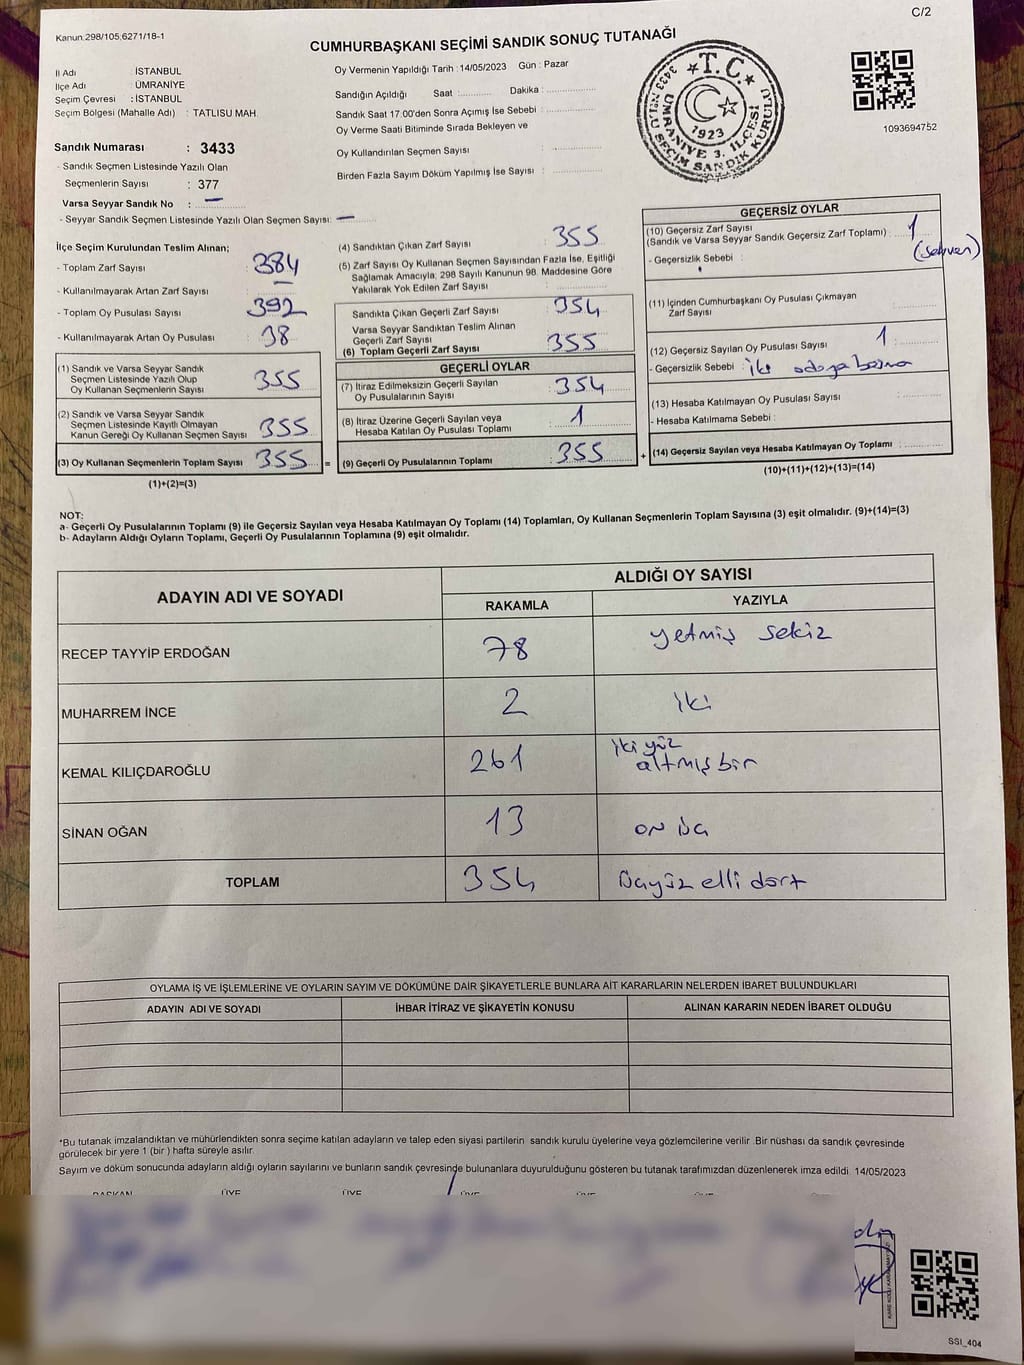 C/2
Kanun:298/105,6271/18-1
CUMHURBAŞKANI SEÇİMİ SANDIK SONUÇ TUTANAĞI
İl Adı : İSTANBUL
İlçe Adı : ÜMRANİYE
Seçim Çevresi : İSTANBUL
Seçim Bölgesi (Mahalle Adı) : TATLISU MAH.
Sandık Numarası : 3433
- Sandık Seçmen Listesinde Yazılı Olan
Seçmenlerin Sayısı : 377
Varsa Seyyar Sandık No : —
- Seyyar Sandık Seçmen Listesinde Yazılı Olan Seçmen Sayısı: —
Oy Vermenin Yapıldığı Tarih :14/05/2023 Gün : Pazar
Sandığın Açıldığı Saat :.......... Dakika :..........
Sandık Saat 17:00'den Sonra Açılmış İse Sebebi :
Oy Verme Saati Bitiminde Sırada Bekleyen ve
Oy Kullandırılan Seçmen Sayısı :
Birden Fazla Sayım Döküm Yapılmış İse Sayısı :
T.C.
1923
ÜMRANİYE 3. İLÇESİ
3433 NOLU SEÇİM SANDIK KURULU
1093694752
İlçe Seçim Kurulundan Teslim Alınan;
- Toplam Zarf Sayısı : 384
- Kullanılmayarak Artan Zarf Sayısı : —
- Toplam Oy Pusulası Sayısı : 392
- Kullanılmayarak Artan Oy Pusulası : 38
(1) Sandık ve Varsa Seyyar Sandık
Seçmen Listesinde Yazılı Olup
Oy Kullanan Seçmenlerin Sayısı : 355
(2) Sandık ve Varsa Seyyar Sandık
Seçmen Listesinde Kayıtlı Olmayan
Kanun Gereği Oy Kullanan Seçmen Sayısı : 355
(3) Oy Kullanan Seçmenlerin Toplam Sayısı : 355 =
(1)+(2)=(3)
(4) Sandıktan Çıkan Zarf Sayısı : 355
(5) Zarf Sayısı Oy Kullanan Seçmen Sayısından Fazla İse, Eşitliği
Sağlamak Amacıyla; 298 Sayılı Kanunun 98. Maddesine Göre
Yakılarak Yok Edilen Zarf Sayısı :
Sandıkta Çıkan Geçerli Zarf Sayısı : 354
Varsa Seyyar Sandıktan Teslim Alınan
Geçerli Zarf Sayısı
(6) Toplam Geçerli Zarf Sayısı : 355
GEÇERLİ OYLAR
(7) İtiraz Edilmeksizin Geçerli Sayılan
Oy Pusulalarının Sayısı : 354
(8) İtiraz Üzerine Geçerli Sayılan veya
Hesaba Katılan Oy Pusulası Toplamı : 1
(9) Geçerli Oy Pusulalarının Toplamı : 355 +
GEÇERSİZ OYLAR
(10) Geçersiz Zarf Sayısı
(Sandık ve Varsa Seyyar Sandık Geçersiz Zarf Toplamı) : 1
(sehven)
- Geçersizlik Sebebi :
(11) İçinden Cumhurbaşkanı Oy Pusulası Çıkmayan
Zarf Sayısı :
(12) Geçersiz Sayılan Oy Pusulası Sayısı : 1
- Geçersizlik Sebebi : iki adaya basma
(13) Hesaba Katılmayan Oy Pusulası Sayısı :
- Hesaba Katılmama Sebebi :
(14) Geçersiz Sayılan veya Hesaba Katılmayan Oy Toplamı :
(10)+(11)+(12)+(13)=(14)
NOT:
a- Geçerli Oy Pusulalarının Toplamı (9) ile Geçersiz Sayılan veya Hesaba Katılmayan Oy Toplamı (14) Toplamları, Oy Kullanan Seçmenlerin Toplam Sayısına (3) eşit olmalıdır. (9)+(14)=(3)
b- Adayların Aldığı Oyların Toplamı, Geçerli Oy Pusulalarının Toplamına (9) eşit olmalıdır.
ADAYIN ADI VE SOYADI
ALDIĞI OY SAYISI
RAKAMLA YAZIYLA
RECEP TAYYİP ERDOĞAN 78 yetmiş sekiz
MUHARREM İNCE 2 iki
KEMAL KILIÇDAROĞLU 261 iki yüz
altmış bir
SİNAN OĞAN 13 on üç
TOPLAM 354 üçyüz elli dört
OYLAMA İŞ VE İŞLEMLERİNE VE OYLARIN SAYIM VE DÖKÜMÜNE DAİR ŞİKAYETLERLE BUNLARA AİT KARARLARIN NELERDEN İBARET BULUNDUKLARI
ADAYIN ADI VE SOYADI İHBAR İTİRAZ VE ŞİKAYETİN KONUSU ALINAN KARARIN NEDEN İBARET OLDUĞU
*Bu tutanak imzalandıktan ve mühürlendikten sonra seçime katılan adayların ve talep eden siyasi partilerin sandık kurulu üyelerine veya gözlemcilerine verilir .Bir nüshası da sandık çevresinde
görülecek bir yere 1 (bir ) hafta süreyle asılır.
Sayım ve döküm sonucunda adayların aldığı oyların sayılarını ve bunların sandık çevresinde bulunanlara duyurulduğunu gösteren bu tutanak tarafımızdan düzenlenerek imza edildi. 14/05/2023
BAŞKAN ÜYE ÜYE ÜYE ÜYE ÜYE ÜYE
SSI_404